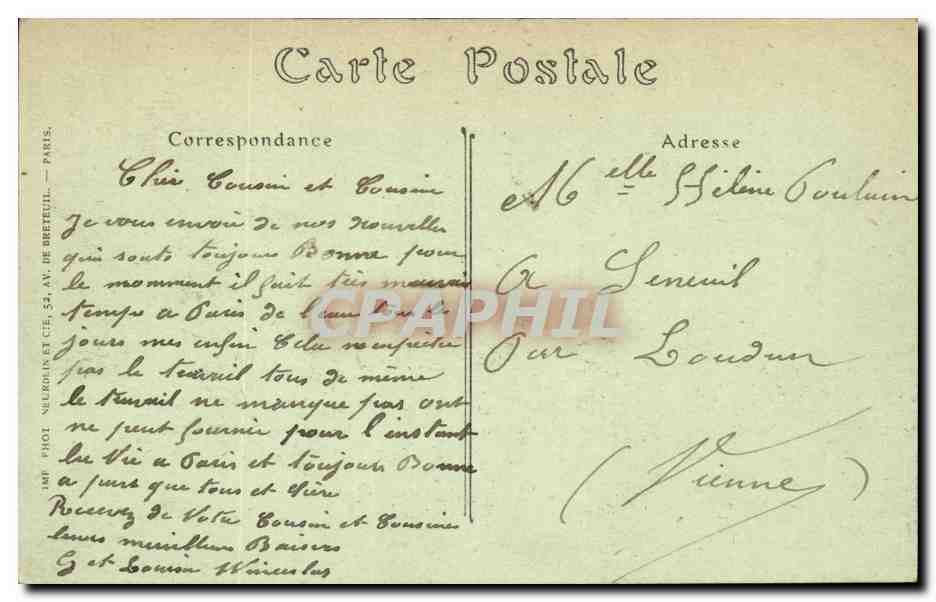 Carte Postale
Correspondance
Cher Cousin et Cousine
Je vous envoie de nos nouvelles
qui sonts toujours Bonne pour
le momment il fait très mauvais
temps a Paris de l'eau tous les
jours mes enfin Cela n'empêche
pas le travail tous de même
le travail ne manque pas ont
ne peut fournir pour l'instant
la Vie a Paris et toujours Bonne
a part que tous et chère
Recevez de Votre Cousin et Cousines
leurs meilleurs Baisers
G et Louise
Adresse
Melle Hélène Poulain
A Seneuil
Par Loudun
(Vienne)
IMP. PHOT. NEURDEIN ET CIE, 52, AV. DE BRETEUIL. — PARIS.
CPAPHIL